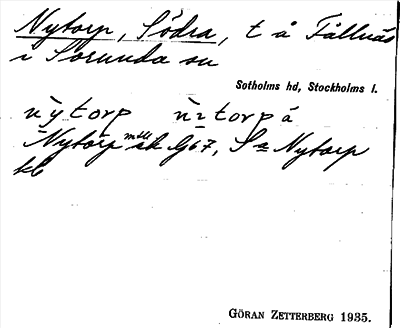 Nytorp, Södra, t å Fållnäs
i Sorunda sn
Sotholms hd, Stockholms l.
Nytorp G67, Sa Nytorp
GÖRAN ZETTERBERG 1935.